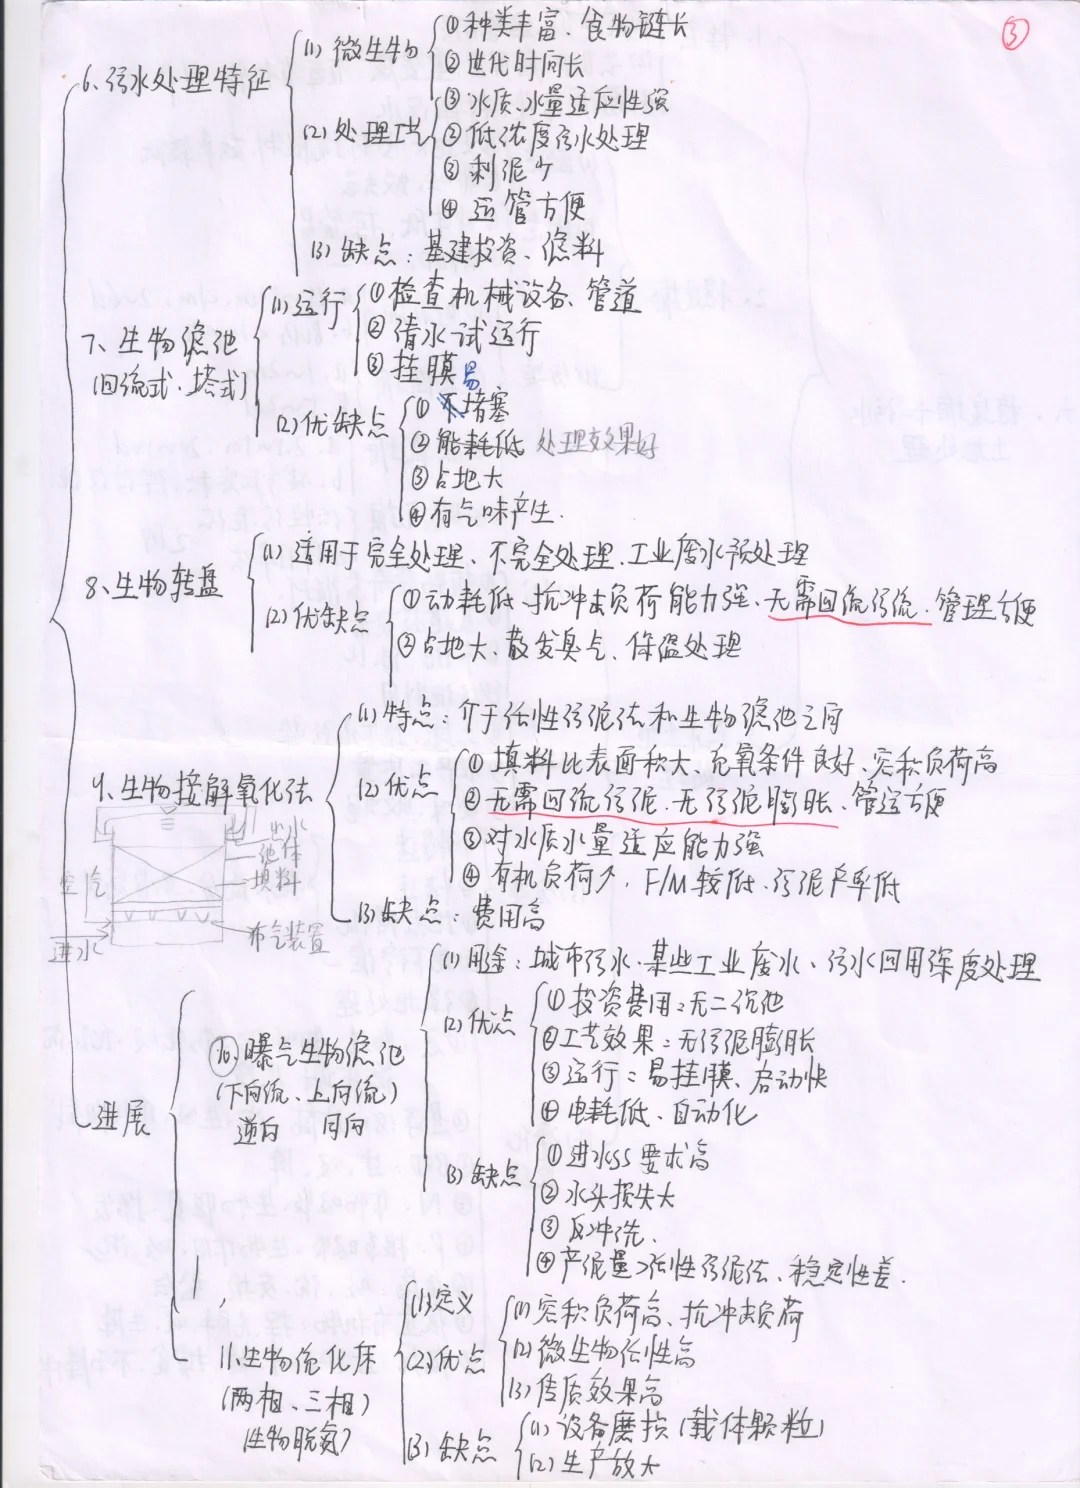 ③
6、污水处理特征
(1) 微生物
① 种类丰富、食物链长
② 世代时间长
(2) 处理工艺
① 水质、水量适应性强
② 低浓度污水处理
③ 剩泥少
④ 运管方便
(3) 缺点：基建投资、滤料
7、生物滤池
(回流式、塔式)
(1) 运行
① 检查机械设备、管道
② 清水试运行
③ 挂膜
(2) 优缺点
① 易堵塞
② 能耗低 处理效果好
③ 占地大
④ 有气味产生.
8、生物转盘
(1) 适用于完全处理、不完全处理、工业废水预处理
(2) 优缺点
① 动耗低、抗冲击负荷能力强、无需回流污泥、管理方便
② 占地大、散发臭气、保温处理
9、生物接解氧化法
(1) 特点：介于活性污泥法和生物滤池之间
(2) 优点
① 填料比表面积大、充氧条件良好、容积负荷高
② 无需回流污泥、无污泥膨胀、管运方便
③ 对水质水量适应能力强
④ 有机负荷大，F/M较低、污泥产率低
(3) 缺点：费用高
出水
池体
填料
空气
布气装置
进水
进展
10、曝气生物滤池
(下向流、上向流)
逆向 同向
(1) 用途：城市污水、某些工业废水、污水回用深度处理
(2) 优点
① 投资费用：无二沉池
② 工艺效果：无污泥膨胀
③ 运行：易挂膜、启动快
④ 电耗低、自动化
(3) 缺点
① 进水SS要求高
② 水头损失大
③ 反冲洗.
④ 产泥量>活性污泥法、稳定性差.
11、生物流化床
(两相、三相)
(生物脱氮)
(1) 定义
(2) 优点
(1) 容积负荷高、抗冲击负荷
(2) 微生物活性高
(3) 传质效果高
(3) 缺点
(1) 设备磨损 (载体颗粒)
(2) 生产放大